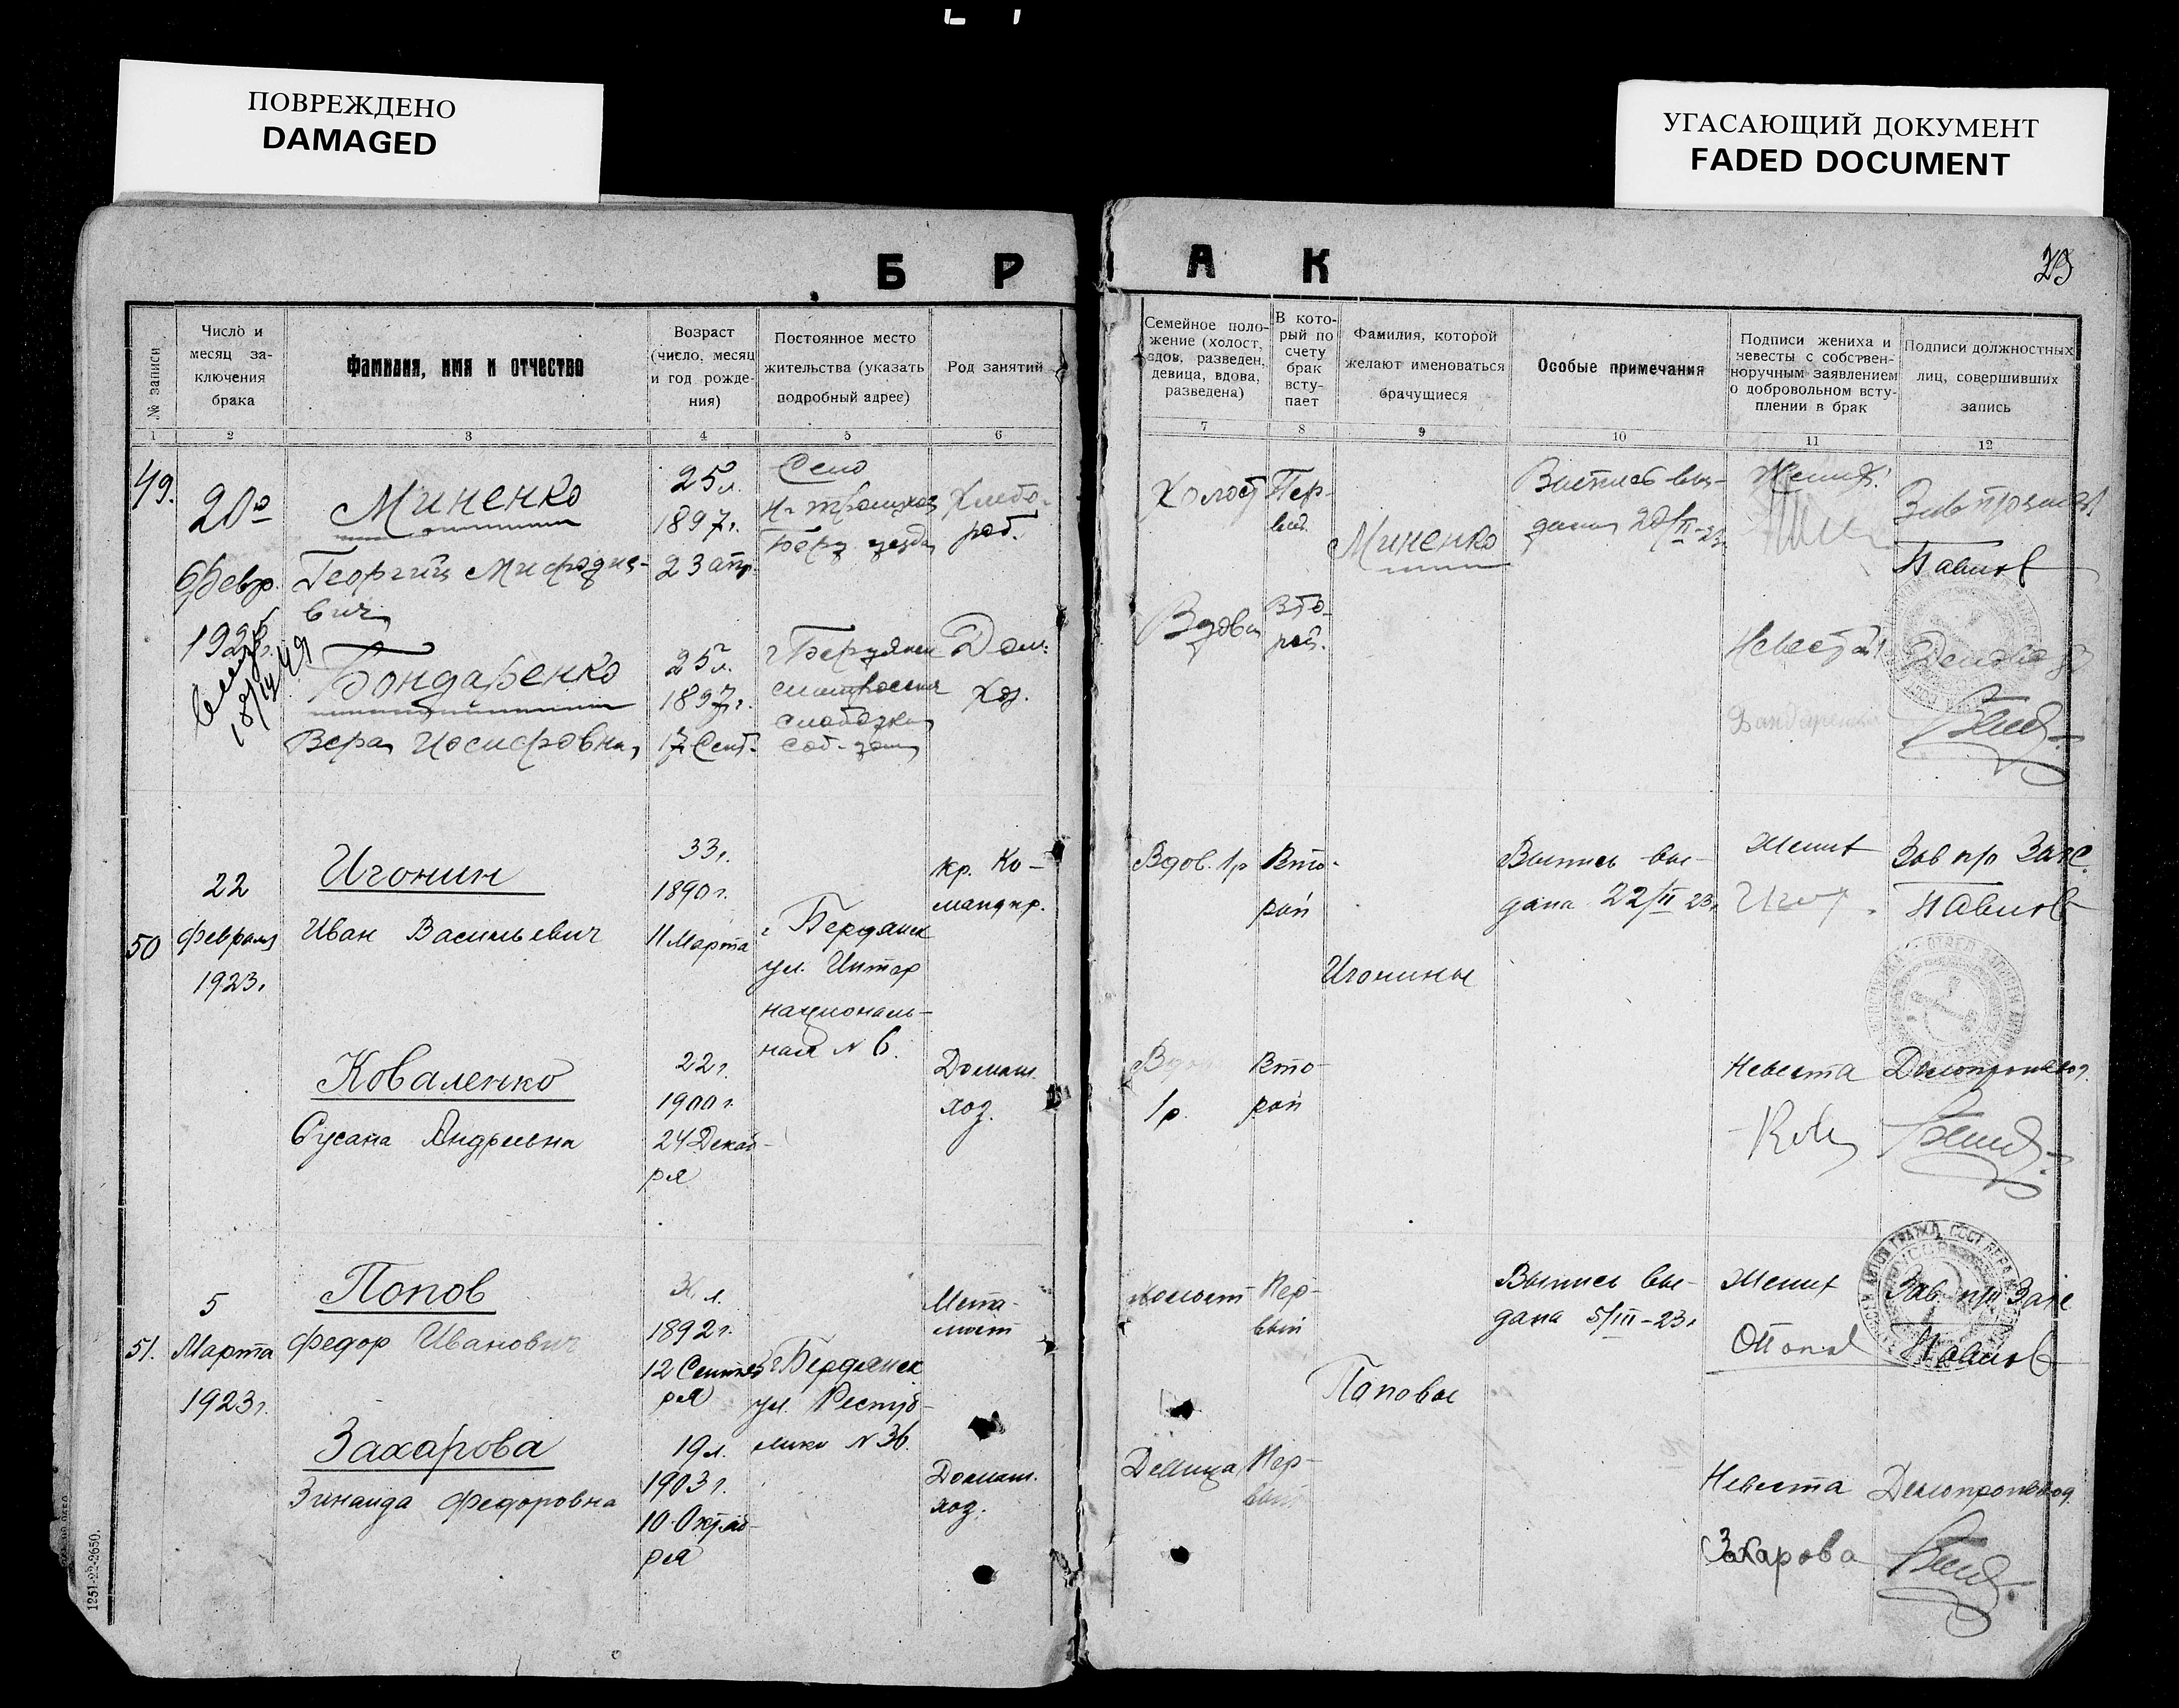 ПОВРЕЖДЕНО
DAMAGED
УГАСАЮЩИЙ ДОКУМЕНТ
FADED DOCUMENT
Б Р А К
29
№ записи
Число и
месяц за-
ключения
брака
Фамилия, имя и отчество
Возраст
(число, месяц
и год рожде-
ния)
Постоянное место
жительства (указать
подробный адрес)
Род занятий
Семейное поло-
жение (холост,
вдов, разведен,
девица, вдова,
разведена)
В кото-
рый по
счету
брак
всту-
пает
Фамилия, которой
желают именоваться
брачущиеся
Особые примечания
Подписи жениха и
невесты с собствен-
норучным заявлением
о добровольном всту-
плении в брак
Подписи должностных
лиц, совершивших
запись
1 2 3 4 5 6 7 8 9 10 11 12
49.
20го
Февр.
1923г.
18/IV 49
Миненко
Георгий Мифодие-
вич
25 л.
1897 г.
23 апр.
Село
Н-Троицкое
Берд. уезда
Хлебо-
роб.
Холост
Пер-
вый
Миненко
Выпись вы-
дана 20/II-23
Жених
Павлов
Бондаренко
Вера Иосифовна
25 л.
1897 г.
17 Сент.
г. Бердянск
слободка
соб. дом
Дом.
хоз.
Вдова
Вто-
рой.
Невеста
Бондаренко
50
22
Февраля
1923г.
Игонин
Иван Васильевич
33 г.
1890 г.
11 Марта
г. Бердянск
ул. Интер
националь-
ная N 6.
кр. Ко-
мандир.
Вдов. 1р
Вто-
рой
Игонины
Выпись вы-
дана 22/II 23г.
Жених
Зав п/о Загс
Павлов
Коваленко
Сусана Андреевна
22 г.
1900 г.
24 Декаб-
ря
Домаш.
хоз.
1р.
Вто-
рой
Невеста
Делопроизвод.
51.
5
Марта
1923 г.
Попов
Федор Иванович
1892 г.
12 Сентяб
ря
г. Бердянск
ул. Респуб-
лики N 36.
Мета-
лист
Холост
Пер-
вый
Поповы
Выпись вы-
дана 5/III-23г
Жених
Зав. п/о Загс
Павлов
Захарова
Зинаида Федоровна
19 л.
1903 г.
10 Октяб-
ря
Домаш.
хоз.
Девица
Пер-
вый
Невеста
Делопроизвод.
Захарова
1251-22-2650.